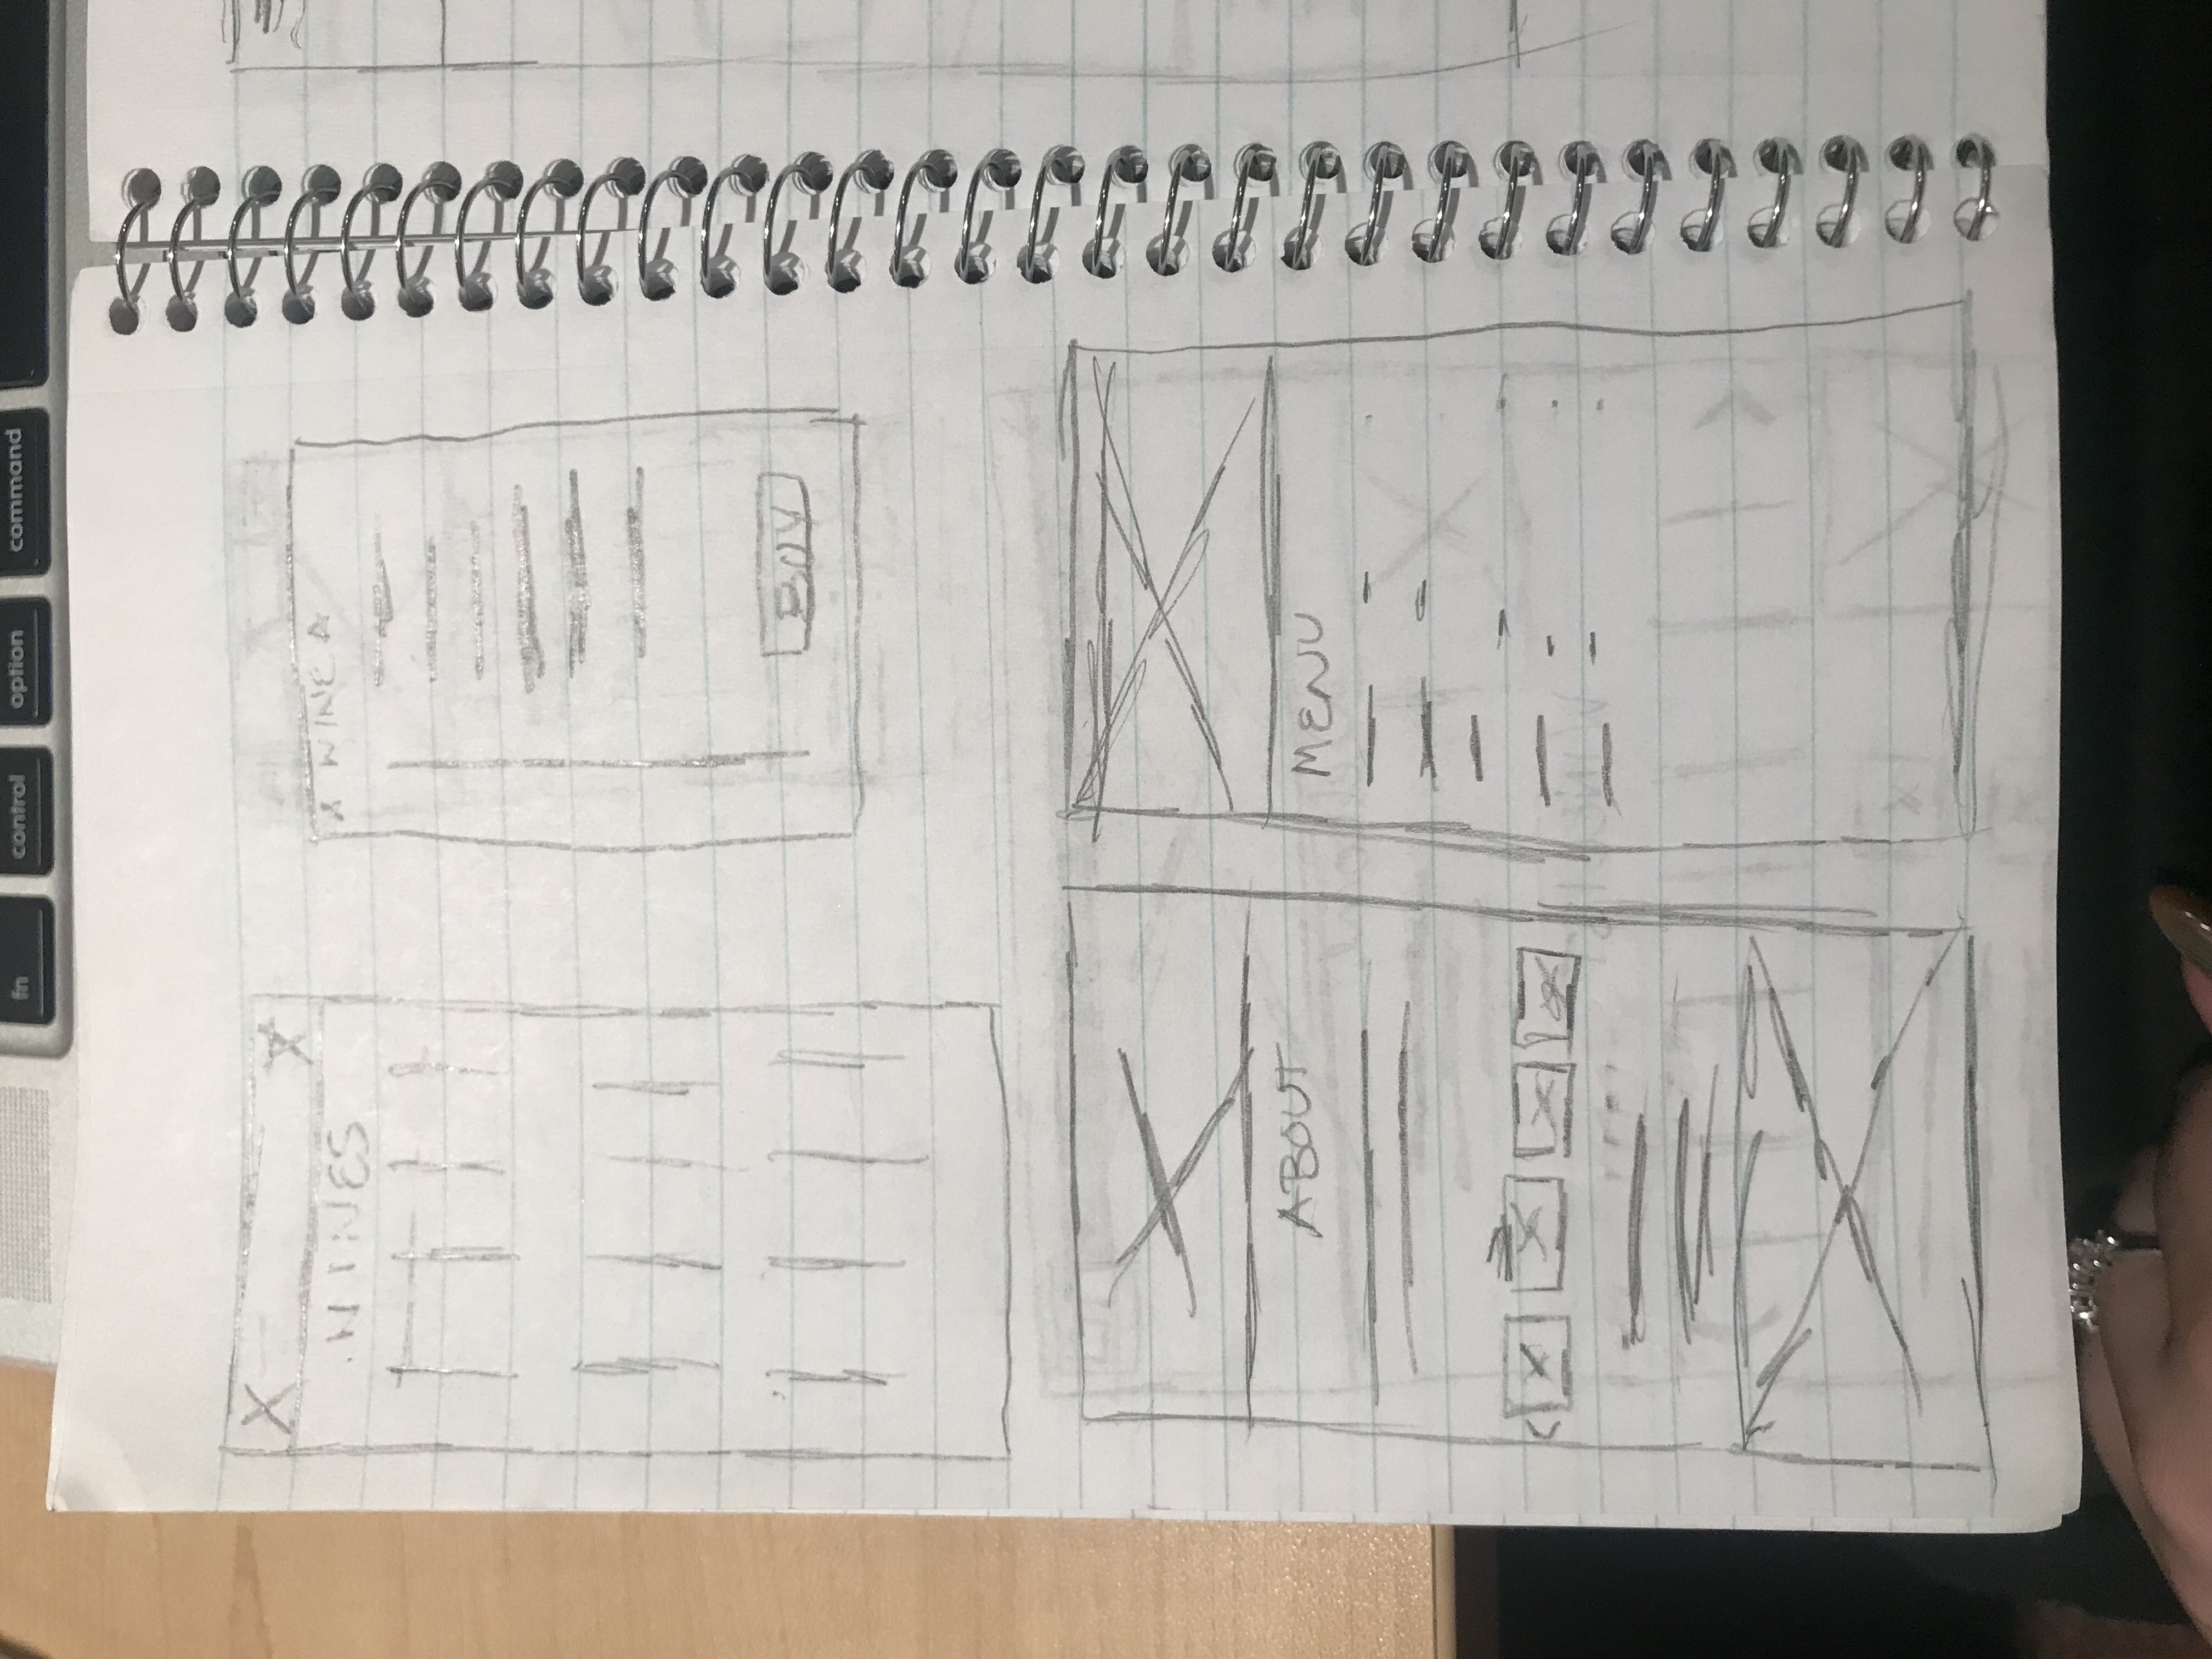 fn control option command
WINES
X WINE A
BUY
ABOUT
MENU